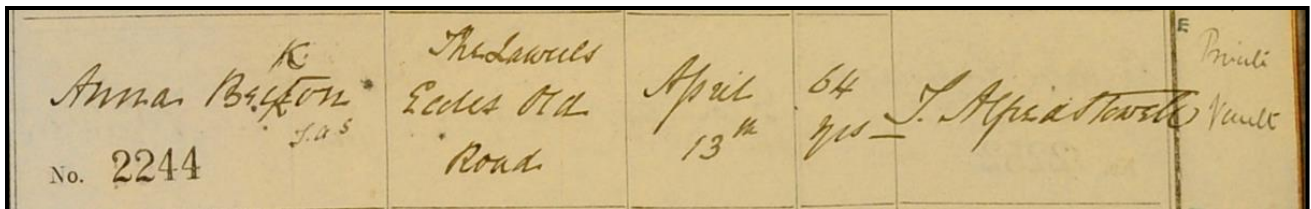 K
Anna Becton
T.A.S
No. 2244
The Laurels
Eccles Old
Road
April
13th
64
yrs
T. Alfred Stowell
E
Private
Vault